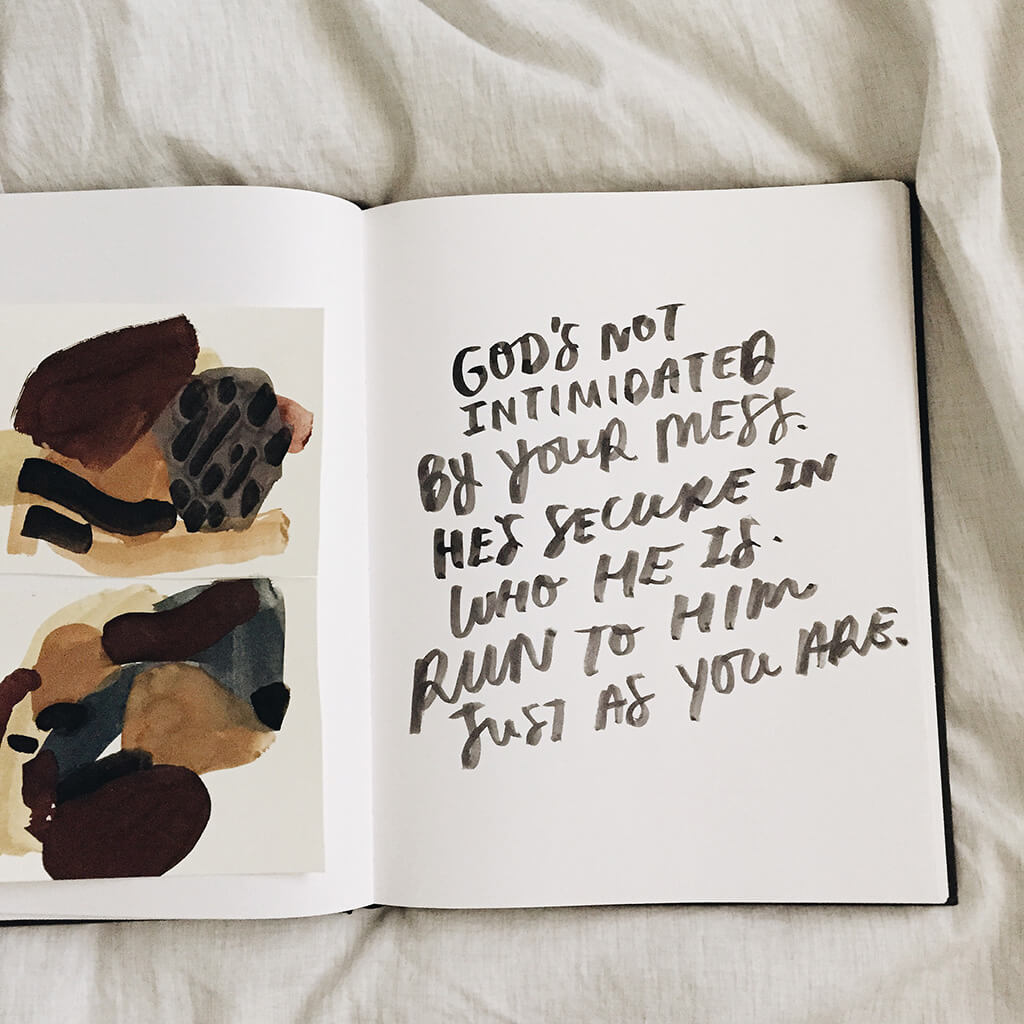 GOD'S NOT
INTIMIDATED
BY YOUR MESS.
HES SECURE IN
WHO HE IS.
RUN TO HIM
JUST AS YOU ARE.